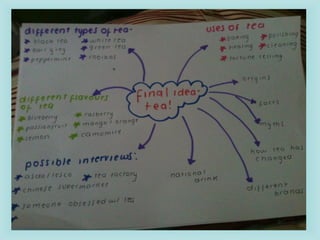 different types of tea-
black tea
white tea
earl grey
green tea
peppermint
uses of tea
baking
polishing
healing
cleaning
fortune telling
Final idea-
tea!
origins
facts
myths
how tea has
changed
different
brands
national
drink
different flavours
of tea
blueberry
rasberry
passionfruit
mango/orange
lemon
camomile
possible interviews:
asda/tesco
tea factory
chinese supermarket
someone obsessed w/ tea